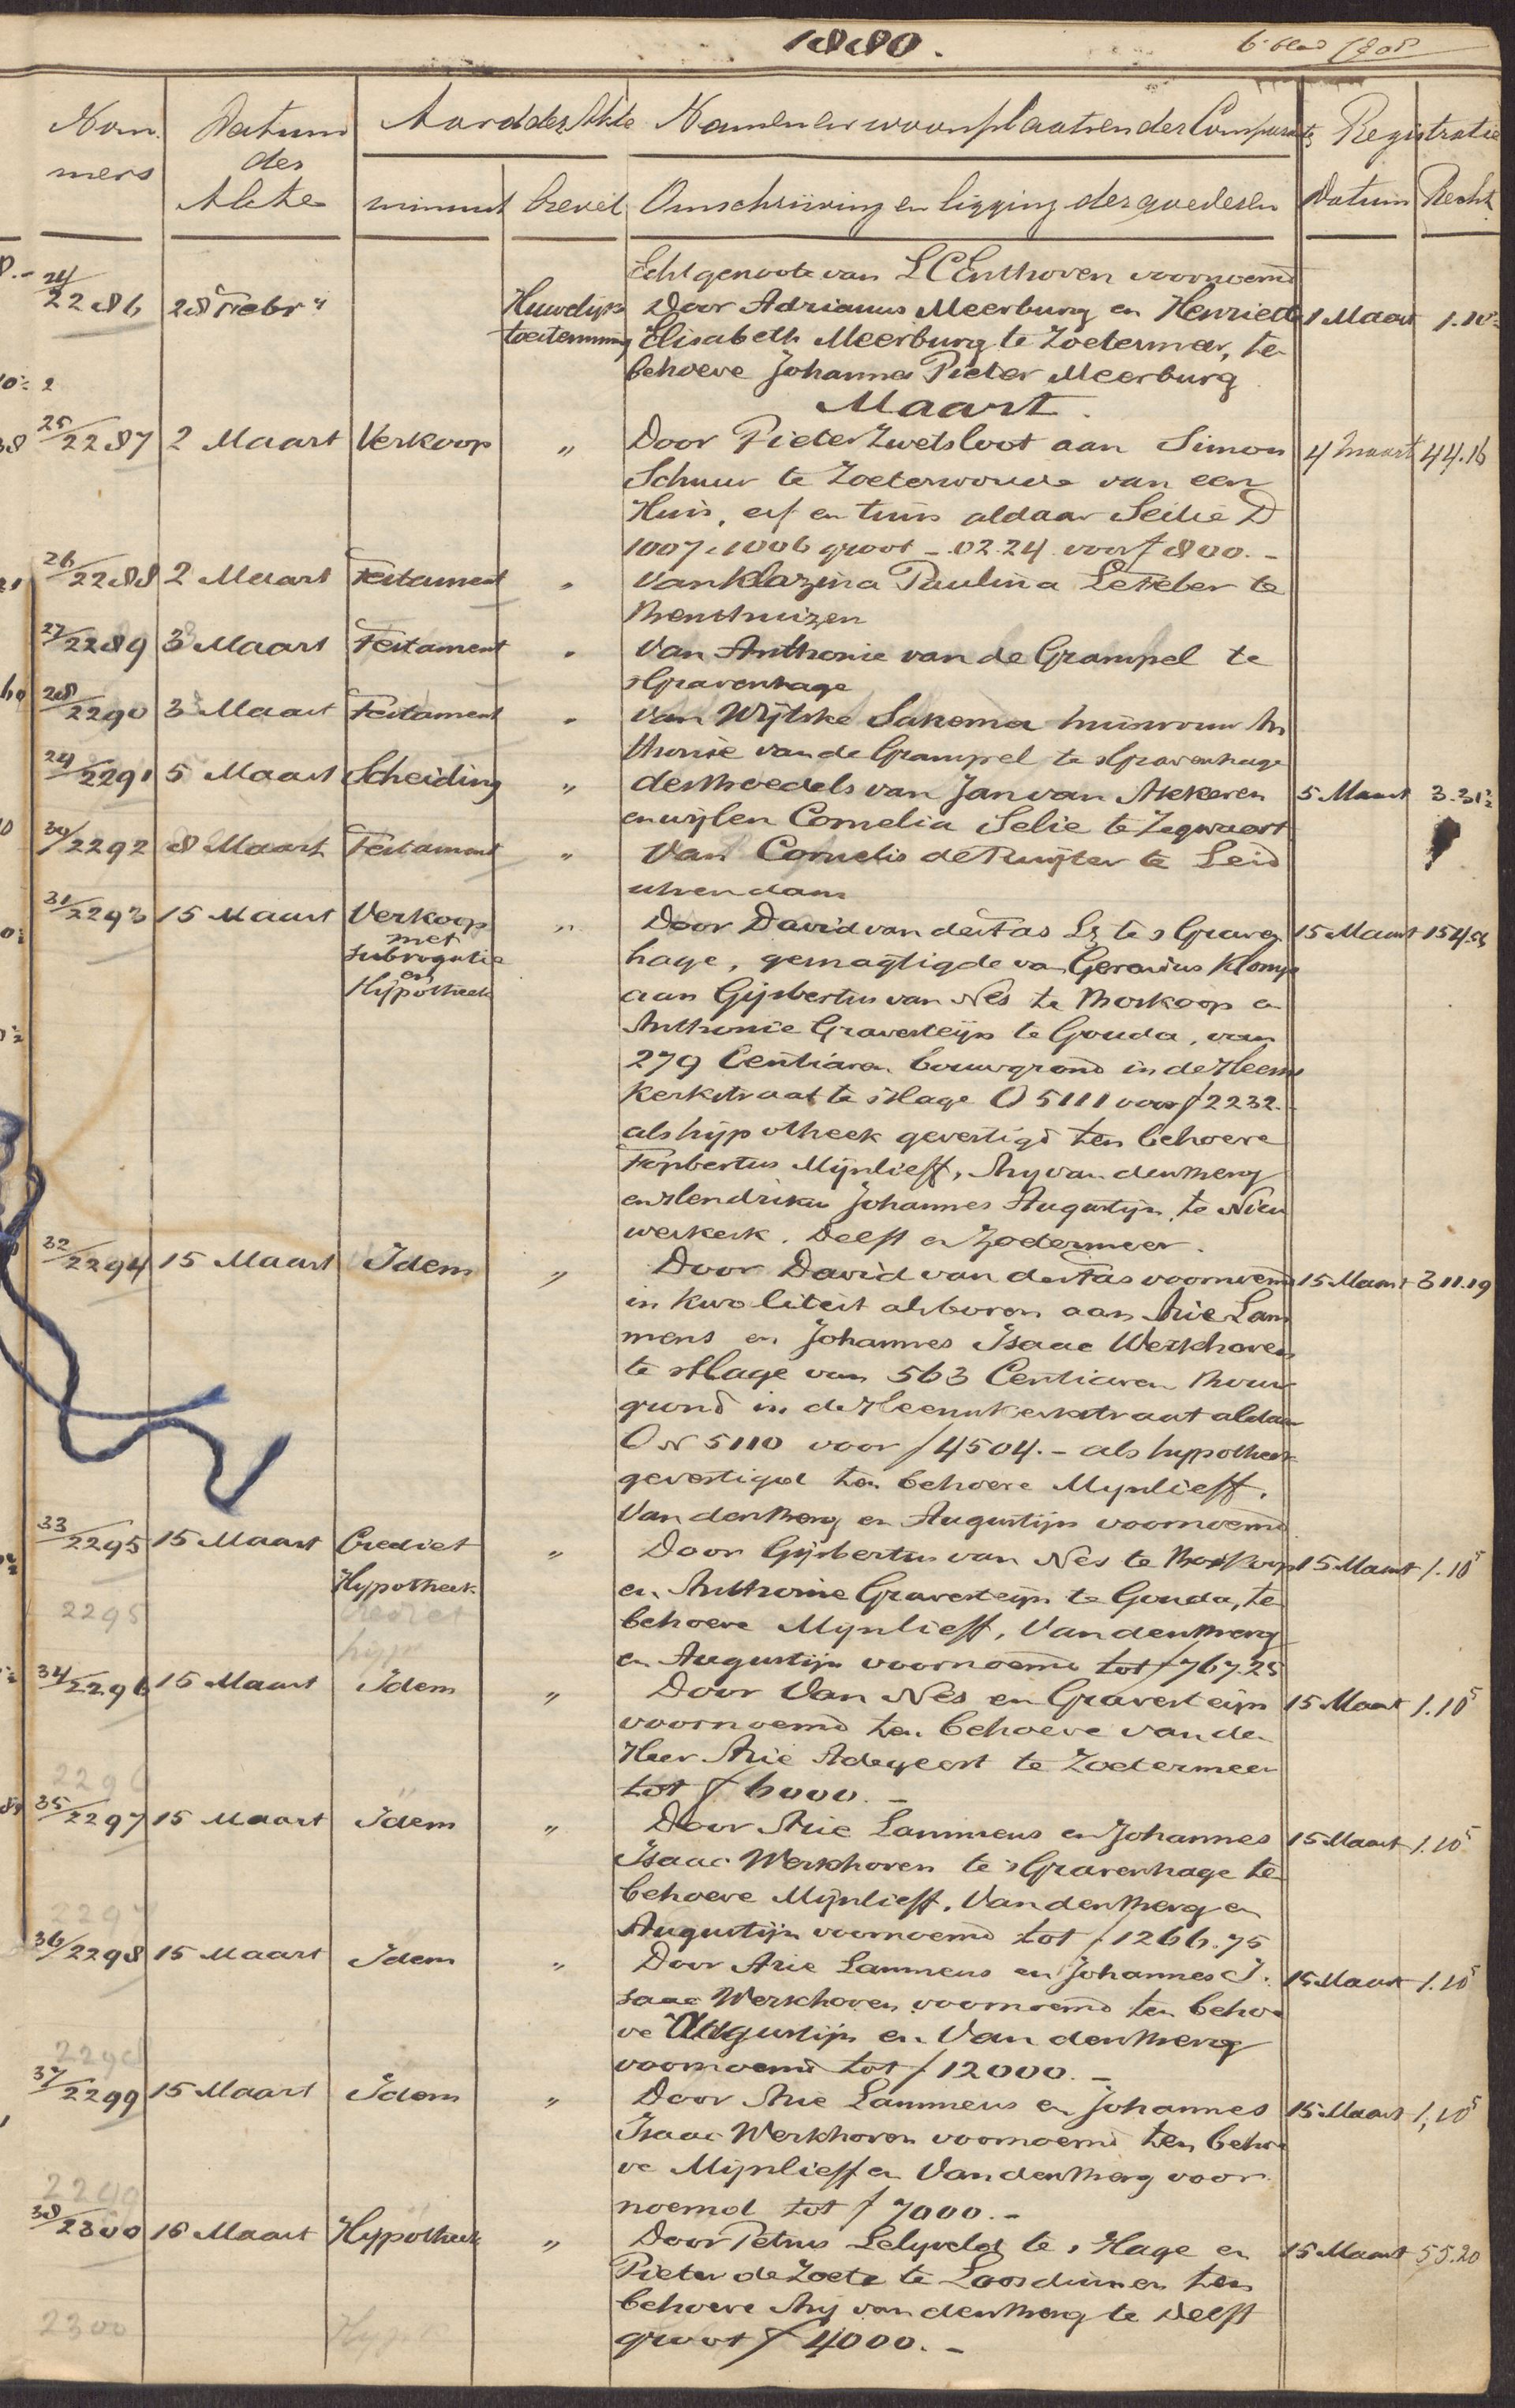 1880.
6e blad
Nom mers
Datum der Akte
Aard der Akte
Namen en woonplaatsen der Comparaten
Registratie
minuut
brevet
Omschrijving en ligging der goederen
Datum
Recht
Echtgenoote van L C Enthoven voornoemd
24/2286 28 Febr Huwelijks Door Adrianus Meerburg en Henriette 1 Maart 1.10
toestemming Elisabeth Meerburg te Zoetermeer, ten
behoeve Johannes Pieter Meerburg
Maart.
25/2287 2 Maart Verkoop " Door Pieter Zwetsloot aan Simon 4 Maart 44.16
Schuur te Zoeterwoude van een
Huis, erf en tuin aldaar Sectie D
1007 1006 groot -.02.24 voor f 800.-
26/2288 2 Maart Testament " Van Klazina Paulina Lefeber te
Benthuizen
27/2289 3 Maart Testament " Van Anthonie van de Grampel te
sGravenhage
28/2290 3 Maart Testament " Van Wijtske Sakema huisvrouw An
thonie van de Grampel te sGravenhage
29/2291 5 Maart Scheiding " des boedels van Jan van Akkeren 5 Maart 3.31½
en wijlen Cornelia Selie te Zegwaart
30/2292 8 Maart Testament " Van Cornelis de Ruijter te Leid
schendam
31/2293 15 Maart Verkoop " Door David van der Tas Lz te sGraven 15 Maart 154.
met subrogatie hage, gemagtigde van Gerardus Klomp
en Hypotheek aan Gijsbertus van Nes te Boskoop en
Anthonie Gravesteijn te Gouda, van
279 Centiaren bouwgrond in de Heems
kerkstraat te sHage O 5111 voor f 2232.-
als hijpotheek gevestigd ten behoeve
Fopbertus Mijnlieff, Arij van den Berg
en Hendrikus Johannes Augustijn te Nieu
werkerk. Delft en Zoetermeer.
32/2294 15 Maart Idem " Door David van der Tas voornoemd 15 Maart 311.19
in kwaliteit als boven aan Arie Lam
mens en Johannes Isaac Werkhoven
te sHage van 563 Centiaren Bouw
grond in de Heemskerkstraat aldaar
O N 5110 voor f 4504.- als hypotheek
gevestigd ten behoeve Mijnlieff,
Van den Berg en Augustijn voornoemd
33/2295 15 Maart Crediet " Door Gijsbertus van Nes te Boskoop 15 Maart 1.10⁵
Hypotheek en Anthonie Gravesteijn te Gouda, ten
2295 Crediet behoeve Mijnlieff, Van den Berg
hyp en Augustijn voornoemd tot f 767.25
34/2296 15 Maart Idem " Door Van Nes en Gravesteijn 15 Maart 1.10⁵
voornoemd ten behoeve van den
Heer Arie Adegeest te Zoetermeer
2296 tot f 6000.-
35/2297 15 Maart Idem " Door Arie Lammens en Johannes 15 Maart 1.10⁵
Isaac Werkhoven te sGravenhage ten
behoeve Mijnlieff, Van den Berg en
2297 Augustijn voornoemd tot f 1266.75
36/2298 15 Maart Idem " Door Arie Lammens en Johannes I. 15 Maart 1.10⁵
saac Werkhoven voornoemd ten behoe
ve Augustijn en Van den Berg
2298 voornoemd tot f 12000.-
37/2299 15 Maart Idem " Door Arie Lammens en Johannes 15 Maart 1,10⁵
Isaac Werkhoven voornoemd ten behoe
ve Mijnlieff en Van den Berg voor
2299 noemd tot f 7000.-
38/2300 16 Maart Hypotheek " Door Petrus Lelyveld te sHage en 15 Maart 55.20
Pieter de Zoete te Loosduinen ten
behoeve Arij van den Berg te Delft
2300 Hyp groot f 4000.-